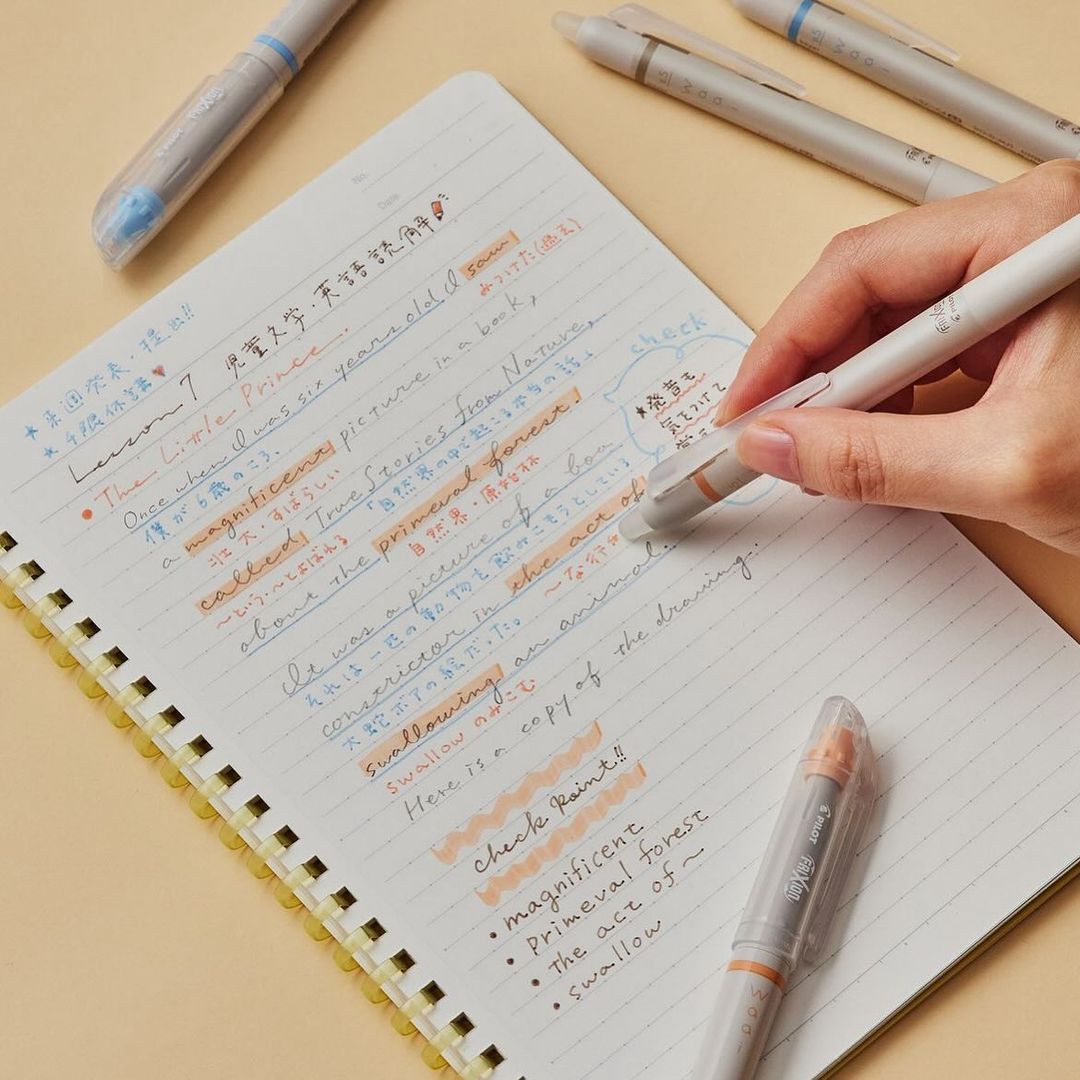 No.
Date
★来週発表・提出!!
★4限休講
Lesson 7 児童文学・英語読解
The Little Prince
Once when I was six years old I saw
みつけた(過去)
僕が6歳のころ、
a magnificent picture in a book,
壮大・すばらしい
called True Stories from Nature,
〜という・〜とよばれる
「自然界の中で起こる本当の話」
about the primeval forest.
自然界・原始林
It was a picture of a boa
それは一匹の動物を飲みこもうとしている
constrictor in the act of
〜な行為
大蛇ボアの絵だった。
swallowing an animal.
swallow のみこむ
Here is a copy of the drawing.
check
★発音も
気をつけて
check point!!
• magnificent
• primeval forest
• the act of〜
• swallow
PILOT FRIXION
Waai
PILOT FRIXION
0.5 Waai
0.5 Waai
FRIXION PILOT